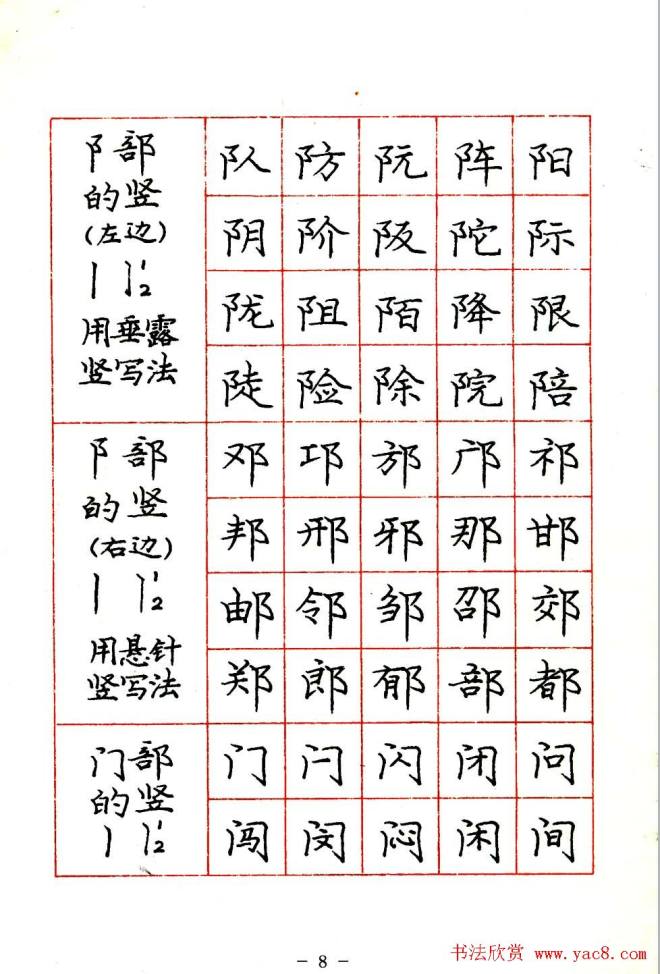 阝部
的竖
(左边)
丨 丨1/2
用垂露
竖写法
队 防 阮 阵 阳
阴 阶 阪 陀 际
陇 阻 陌 降 限
陡 险 除 院 陪
阝部
的竖
(右边)
丨 丨1/2
用悬针
竖写法
邓 邛 邡 邝 祁
邦 邢 邪 那 邯
邮 邻 邹 邵 郊
郑 郎 郁 部 都
门部
的竖
丨 丨1/2
门 闩 闪 闭 问
闯 闵 闷 闲 间
- 8 -
书法欣赏 www.yac8.com